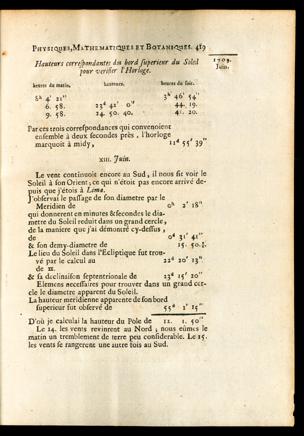 PHYSIQUES, MATHEMATIQUES ET BOTANIQUES. 419
Hauteurs correspondantes du bord superieur du Soleil
pour verifier l'Horloge.
1709.
Juin.
heures du matin. hauteurs. heures du soir.
8h 4' 21" 3h 46' 54"
6. 58. 23d 42' 0" 44. 19.
9. 58. 24. 50. 40. 41. 20.
Par ces trois correspondances qui convenoient
ensemble à deux secondes près, l'horloge
marquoit à midy, 11d 55' 39"
XIII. Juin.
Le vent continuoit encore au Sud, il nous fit voir le
Soleil à son Orient; ce qui n'étoit pas encore arrivé de-
puis que j'étois à Lima.
J'observai le passage de son diametre par le
Meridien de 0h 2' 18"
qui donnerent en minutes & secondes le dia-
metre du Soleil reduit dans un grand cercle,
de la maniere que j'ai démontré cy-dessus,
de 0d 31' 41"
& son demy-diametre de 15. 50.½.
Le lieu du Soleil dans l'Ecliptique fut trou-
vé par le calcul au 22d 20' 13"
de ♊.
& sa declinaison septentrionale de 23d 15' 20"
Elemens necessaires pour trouver dans un grand cer-
cle le diametre apparent du Soleil.
La hauteur meridienne apparente de son bord
superieur fut observé de 55d 1' 15"
D'où je calculai la hauteur du Pole de 12. 1. 50"
Le 14. les vents revinrent au Nord; nous eûmes le
matin un tremblement de terre peu considerable. Le 15.
les vents se rangerent une autre fois au Sud.